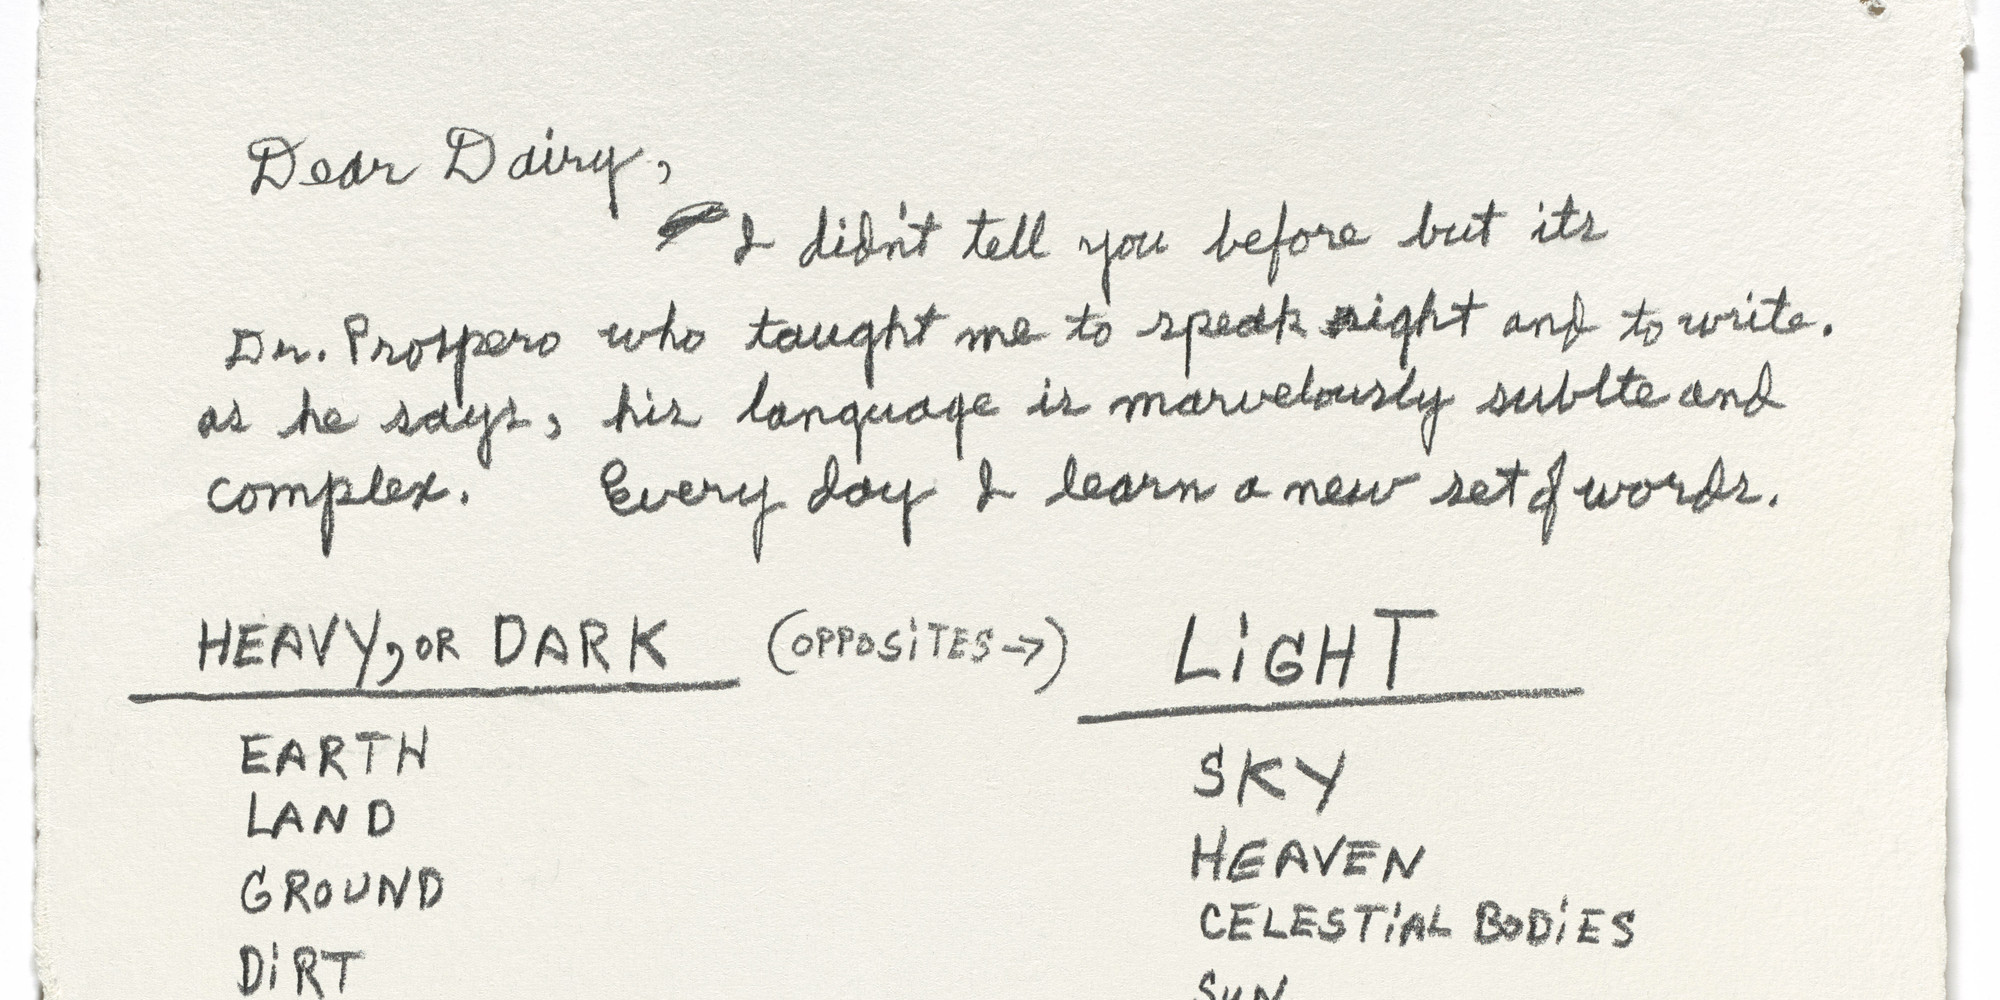 Dear Dairy,
I didn't tell you before but its
Dr. Prospero who taught me to speak right and to write.
as he says, his language is marvelously sublte and
complex. Every day I learn a new set of words.
HEAVY, OR DARK (OPPOSITES→) LiGHT
EARTH SKY
LAND HEAVEN
GROUND CELESTiAL BODiES
DiRT SUN